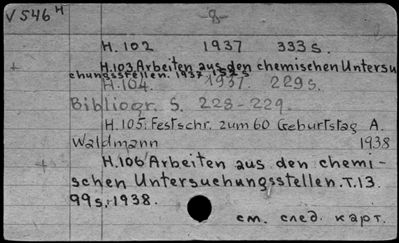 V 546 H
-8-
H.102 1937 333 s.
H.103 Arbeiten aus den chemischen Untersu
chungsstellen. 1937. 152 s
H.104. 1937. 229 s.
Bibliogr. S. 228-229.
H.105. Festschr. zum 60 Geburtstag A.
Waldmann 1938
H.106 Arbeiten aus den chemi-
schen Untersuchungsstellen. T.13.
99 s. 1938.
см. след. карт.